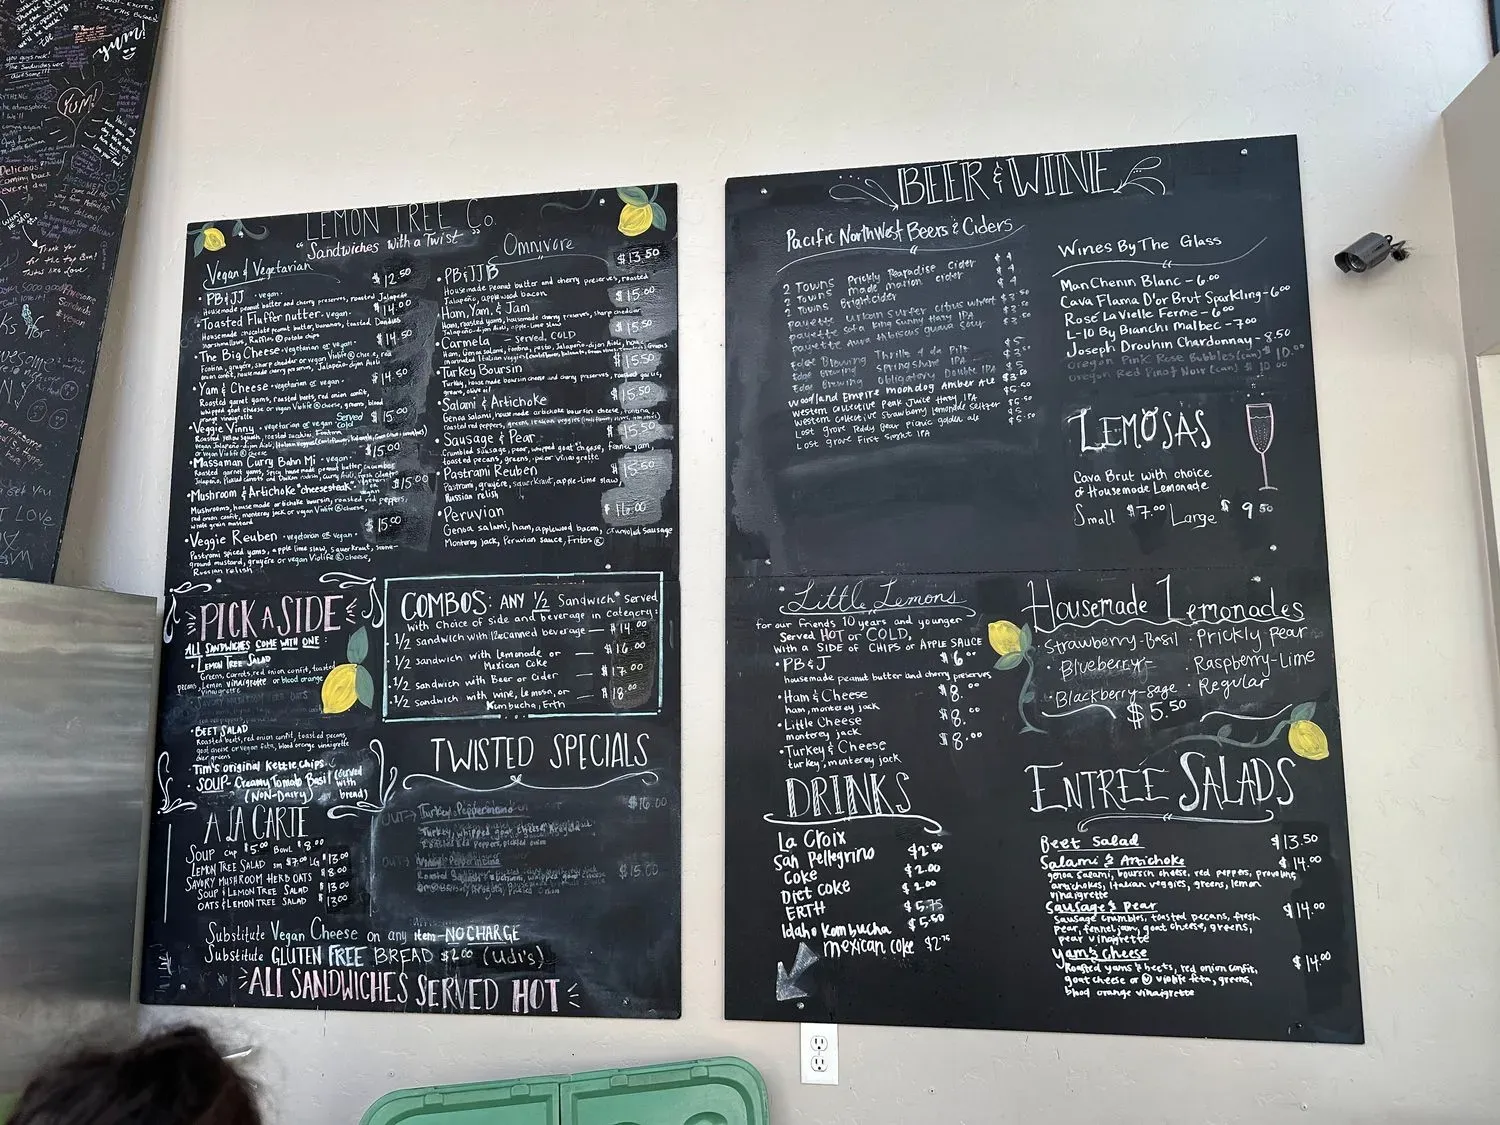 yum!
YUM!
LEMON TREE Co.
"Sandwiches with a Twist"
Vegan & Vegetarian
$12.50
• PB&JJ - vegan -
Housemade peanut butter and cherry preserves, roasted Jalapeño
$14.00
• Toasted Fluffer nutter - vegan -
Housemade chocolate peanut butter, bananas, toasted Dandies
marshmallows, Ruffles ® potato chips
$14.50
• The Big Cheese - vegetarian or vegan -
Fontina, gruyére, sharp cheddar or vegan Violife ® cheese, red
onion confit, housemade cherry preserves, Jalapeño-dijon Aioli
$14.50
• Yam & Cheese - vegetarian or vegan -
Roasted garnet yams, roasted beets, red onion confit,
whipped goat cheese or vegan Violife ® cheese, greens, blood
orange vinaigrette
$15.00
• Veggie Vinny - vegetarian or vegan - Served cold
Roasted yellow squash, roasted zucchini, Fontina
or vegan Violife ® cheese
$15.00
• Massaman Curry Bahn Mi - vegan -
Roasted garnet yams, spicy housemade peanut butter, cucumber,
Jalapeño, Pickled carrots and Daikon radish, curry Aioli, fresh cilantro
$15.00
• Mushroom & Artichoke "cheesesteak"
Mushrooms, housemade artichoke boursin, roasted red peppers,
red onion confit, monterey jack or vegan Violife ® cheese,
whole grain mustard
$15.00
• Veggie Reuben - vegetarian or vegan -
Pastrami spiced yams, apple lime slaw, sauerkraut, stone-
ground mustard, gruyére or vegan Violife ® cheese,
Russian relish
Omnivore
$13.50
• PB&JJB
Housemade peanut butter and cherry preserves, roasted
Jalapeño, applewood bacon
$15.00
• Ham, Yam, & Jam
Ham, roasted yams, housemade cherry preserves, sharp cheddar,
Jalapeño-dijon aioli, apple-lime slaw
$15.50
• Carmela - served COLD
Ham, Genoa salami, fontina, pesto, Jalapeño-dijon Aioli, house
$15.50
• Turkey Boursin
Turkey, housemade boursin cheese and cherry preserves, roasted garlic,
greens, olive oil
$15.50
• Salami & Artichoke
Genoa Salami, housemade artichoke boursin cheese, fontina,
$15.50
• Sausage & Pear
Crumbled sausage, pear, whipped goat cheese, fennel jam,
toasted pecans, greens, pear vinaigrette
$15.50
• Pastrami Reuben
Pastrami, gruyére, sauerkraut, apple-lime slaw,
Russian relish
$16.00
• Peruvian
Genoa salami, ham, applewood bacon, crumbled Sausage
Monterey jack, Peruvian sauce, Fritos ®
PICK A SIDE
ALL SANDWICHES COME WITH ONE:
• LEMON TREE SALAD
Greens, Carrots, red onion confit, toasted
pecans, Lemon vinaigrette or blood orange
vinaigrette
• BEET SALAD
Roasted beets, red onion confit, toasted pecans,
goat cheese or vegan feta, blood orange vinaigrette
over greens
Tim's original kettle chips
• SOUP - Creamy Tomato Basil (served
(NON-Dairy) with
bread)
COMBOS: ANY 1/2 Sandwich* Served
with choice of side and beverage in category:
• 1/2 sandwich with 12oz canned beverage — $14.00
• 1/2 sandwich with Lemonade or — $16.00
Mexican Coke
• 1/2 sandwich with Beer or Cider — $17.00
• 1/2 sandwich with wine, Lemosa, or — $18.00
Kombucha, Erth
TWISTED SPECIALS
OUT → Turkey Pepperoncino $16.00
Turkey, whipped goat cheese
roasted red peppers, pickled onion
OUT → $15.00
A LA CARTE
SOUP cup $5.00 BOWL $8.00
LEMON TREE SALAD sm $7.00 LG $13.00
SAVORY MUSHROOM HERB OATS $8.00
SOUP & LEMON TREE SALAD $13.00
OATS & LEMON TREE SALAD $13.00
Substitute Vegan Cheese on any item - NO CHARGE
Substitute GLUTEN FREE BREAD $2.00 (Udi's)
ALL SANDWICHES SERVED HOT
BEER & WINE
Pacific NorthWest Beers & Ciders
2 Towns Prickly Pearadise Cider $4
2 Towns made marion cider $4
2 Towns Brightcider $4
payette urban surfer citrus wheat $3.50
payette sofa king sunny Hazy IPA $3.50
payette Aura hibiscus guava sour $3.50
Edge Brewing Thrilla de Pils $5
Edge Brewing Springshine IPA $3.50
Edge Brewing Obligatory Double IPA $5
Woodland Empire moondog Amber Ale $3.50
Western collective Peak Juice Hazy IPA $5.50
Western collective Strawberry Lemonade Seltzer $5.50
Lost grove Teddy Bear picnic golden ale $5
Lost grove First Sight IPA $5
Wines By The Glass
Man Chenin Blanc - 6.00
Cava Flama D'or Brut Sparkling - 6.00
Rose La Vielle Ferme - 6.00
L-10 By Bianchi Malbec - 7.00
Joseph Drouhin Chardonnay - 8.50
Oregon Pink Rose Bubbles (can) $10.00
Oregon Red Pinot Noir (can) $10.00
LEMOSAS
Cava Brut with choice
of Housemade Lemonade
Small $7.00 Large $9.50
Little Lemons
for our friends 10 years and younger
Served HOT or COLD,
with a SIDE of CHIPS or APPLE SAUCE
• PB & J $6.00
housemade peanut butter and cherry preserves
• Ham & Cheese $8.00
ham, monterey jack
• Little Cheese $8.00
monterey jack
• Turkey & Cheese $8.00
turkey, monterey jack
DRINKS
La Croix
San Pellegrino $2.50
Coke $2.00
Diet Coke $2.00
ERTH $5.75
Idaho Kombucha $5.50
mexican coke $2.75
Housemade Lemonades
• Strawberry-Basil • Prickly Pear
• Blueberry- • Raspberry-Lime
• Blackberry-sage • Regular
$5.50
ENTREÉ SALADS
Beet Salad $13.50
Salami & Artichoke $14.00
genoa Salami, boursin cheese, red peppers, provolone,
artichokes, italian veggies, greens, lemon
vinaigrette
Sausage & pear $14.00
sausage crumbles, toasted pecans, fresh
pear, fennel jam, goat cheese, greens,
pear vinaigrette
Yam & Cheese $14.00
Roasted yams & beets, red onion confit,
goat cheese or Ⓥ violife feta, greens,
blood orange vinaigrette